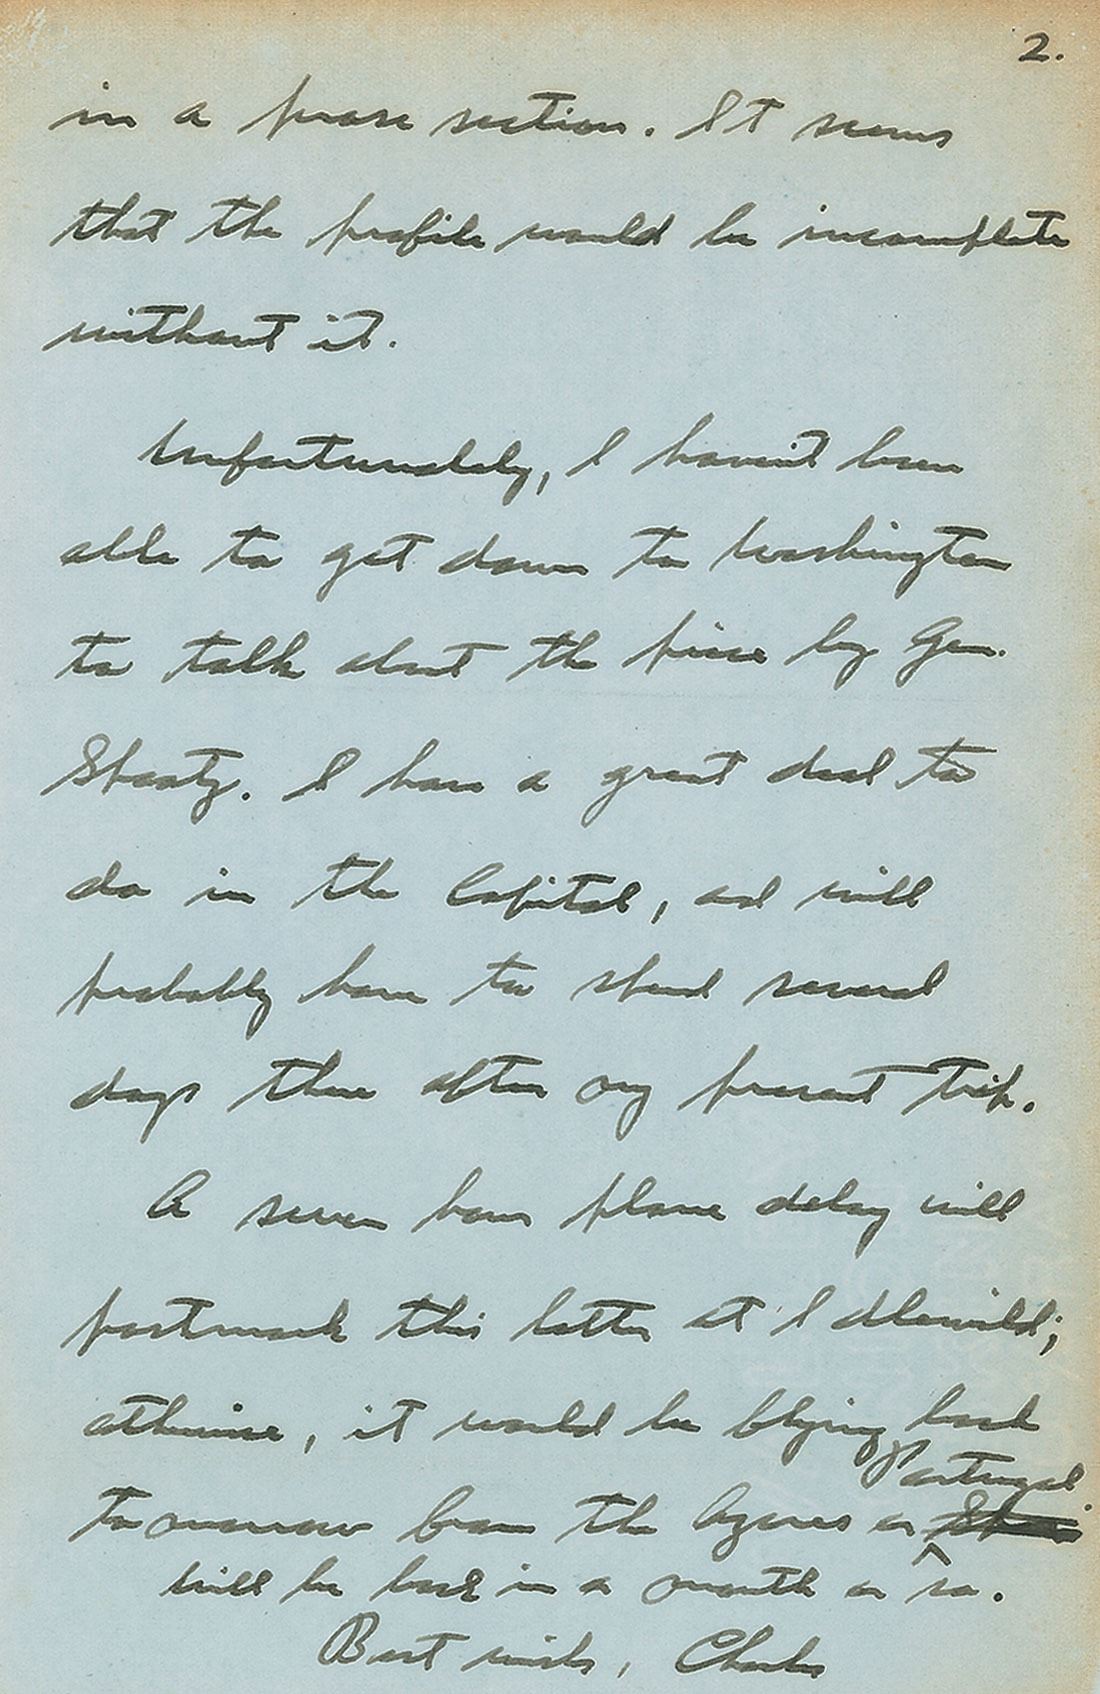 2.
in a prose section. It seems
that the profile would be incomplete
without it.
Unfortunately, I haven't been
able to get down to Washington
to talk about the piece by Gen.
Spaatz. I have a great deal to
do in the Capital, and will
probably have to spend several
days there after my present trip.
A seven hour plane delay will
postmark this letter at Idlewild;
otherwise, it would be flying back
Portugal.
tomorrow from the Azores or
Will be back in a month or so.
Best wishes, Charles